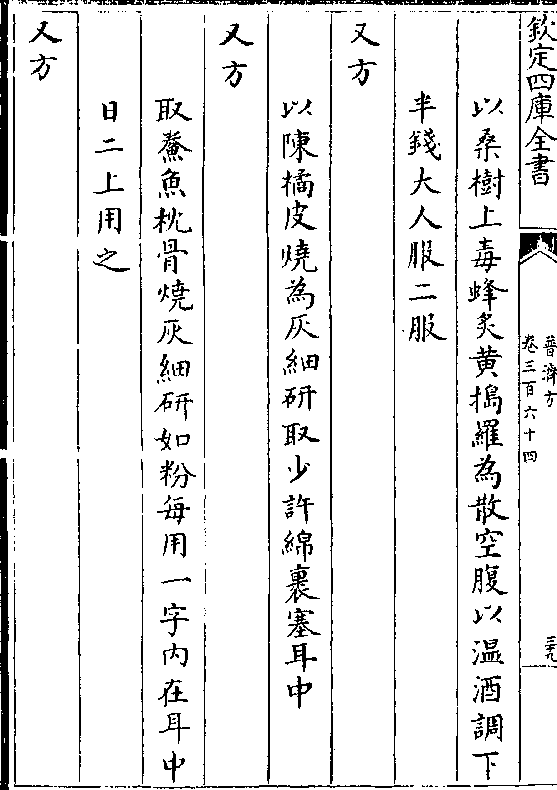 欽定四庫全書
普濟方
卷三百六十四
三九
以桑樹上毒蜂炙黄搗羅為散空腹以温酒調下
半錢大人服二服
又方
以陳橘皮燒為灰細研取少許綿裹塞耳中
又方
取鮝魚枕骨燒灰細研如粉每用一字内在耳中
日二上用之
又方